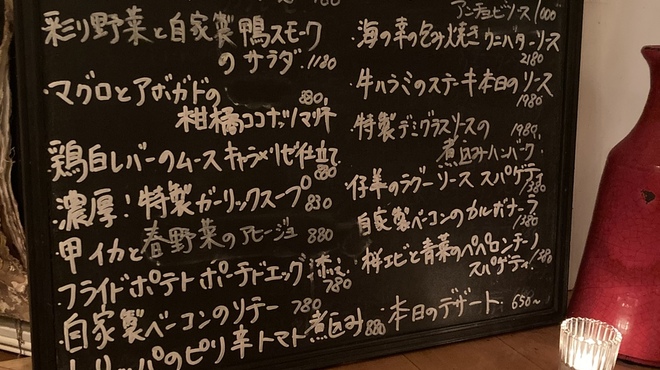 彩り野菜と自家製鴨スモーク
のサラダ. 1180
マグロとアボガドの 880,
柑橘ココナッツマリネ
鶏白レバーのムース キャラメリゼ仕立て
880
濃厚!特製ガーリックスープ 830
甲イカと春野菜のアヒージョ 880
フライドポテト ポーチドエッグ添え
780
自家製ベーコンのソテー 780
トリッパのピリ辛トマト煮込み 880
アンチョビソース 1000
海の幸の包み焼き ウニバターソース
2180
牛ハラミのステーキ 本日のソース
1980
特製デミグラスソースの 1980,
煮込みハンバーグ
仔羊のラグーソース スパゲティ
1380
自家製ベーコンのカルボナーラ
1380
桜エビと青菜のペペロンチーノ
スパゲティ 1380
本日のデザート 650~